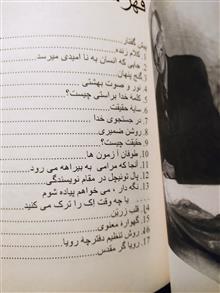 پیش گفتار
1. کلام زنده
2. جایی که انسان به نا امیدی میرسد
3. گنج پنهان
4. نور و صوت بهشتی
5. کلمه خدا براستی چیست؟
6. سایه حقیقت
7. در جستجوی خدا
8. روشن ضمیری
9. حقیقت چیست؟
10. طوفان آزمون ها
11. آنجا که مرامی به بیراهه می رود
12. پال توئیچل در مقام نویسندگی
13. نگه دار، می خواهم پیاده شوم
یا چه وقت اِک را ترک می کنید
14. قلب زرین
15. گهواره معنوی
16. روش تنظیم دفترچه رویا
17. رویا گر مقدس